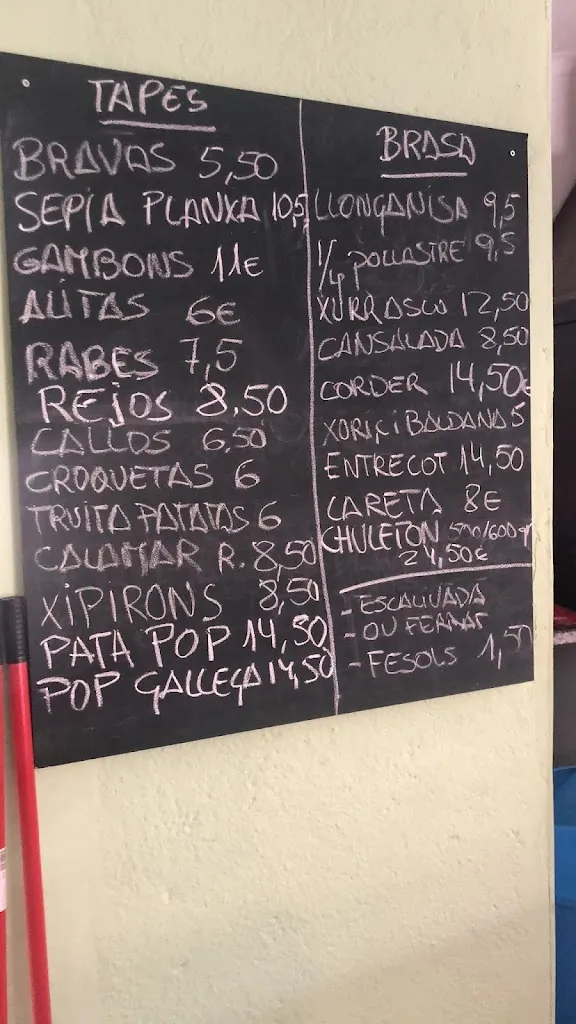 TAPES
BRAVAS 5,50
SEPIA PLANXA 10,5
GAMBONS 11€
ALITAS 6€
RABES 7,5
REJOS 8,50
CALLOS 6,50
CROQUETAS 6
TRUITA PATATAS 6
CALAMAR R. 8,50
XIPIRONS 8,50
PATA POP 14,50
POP GALLEGA 14,50
BRASA
LLONGANISA 9,5
1/4 POLLASTRE 9,5
XURRASCO 12,50
CANSALADA 8,50
CORDER 14,50€
XORIÇ I BALDANA 5
ENTRECOT 14,50
CARETA 8€
CHULETON 500/600gr
24,50€
- ESCALIVADA
- OU FERRAT
- FESOLS 1,50